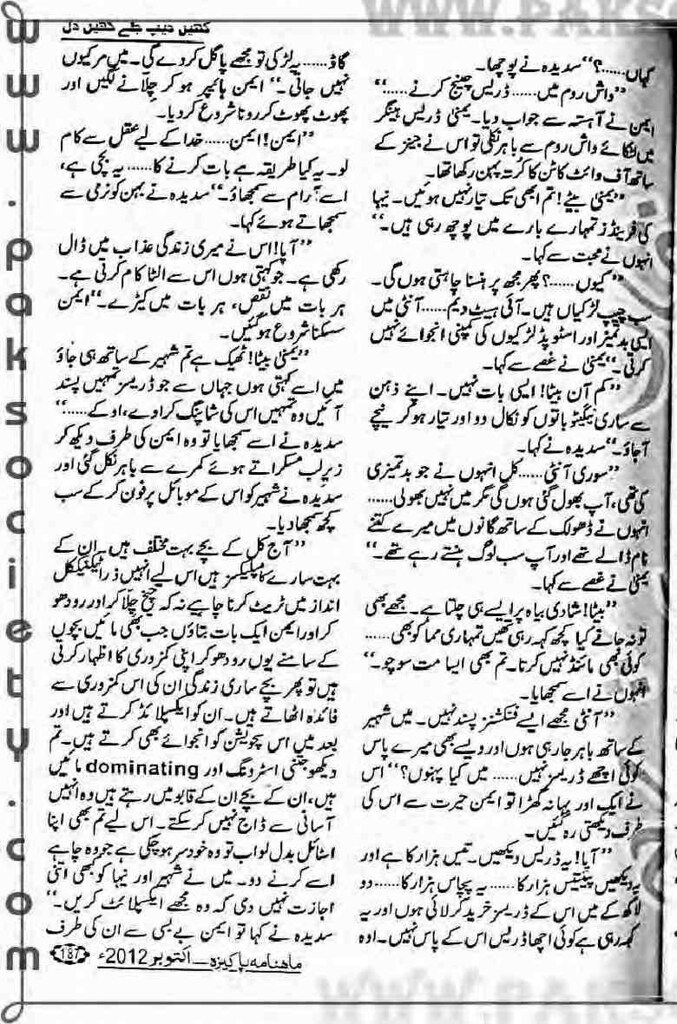 کہیں دیپ جلے کہیں دل
کہاں......؟‘‘ سدیدہ نے پوچھا۔
’’واش روم میں...... ڈریس چینج کرنے......‘‘
ایمن نے آہستہ سے جواب دیا۔ یمنیٰ ڈریس ہینگر
میں لٹکائے واش روم سے باہر نکلی تو اس نے جینز کے
ساتھ آف وائٹ کاٹن کا کُرتہ پہن رکھا تھا۔
’’یمنیٰ بیٹے! تم ابھی تک تیار نہیں ہوئیں۔ نیہا
کی فرینڈز تمہارے بارے میں پوچھ رہی ہیں۔‘‘
انہوں نے محبت سے کہا۔
’’کیوں......؟ پھر مجھ پر ہنسنا چاہتی ہوں گی۔
سب چیپ لڑکیاں ہیں۔ آئی ہیٹ دیم...... آنٹی میں
ایسی بدتمیز اور اسٹوپڈ لڑکیوں کی کمپنی انجوائے نہیں
کرتی۔‘‘ یمنیٰ نے غصے سے کہا۔
’’کم آن بیٹا! ایسی بات نہیں۔ اپنے ذہن
سے ساری نیگیٹو باتوں کو نکال دو اور تیار ہو کر نیچے
آجاؤ۔‘‘ سدیدہ نے کہا۔
’’سوری آنٹی...... کل انہوں نے جو بدتمیزی
کی تھی، آپ بھول گئی ہوں گی مگر میں نہیں بھولی......
انہوں نے ڈھولک کے ساتھ گانوں میں میرے کتنے
نام ڈالے تھے اور آپ سب لوگ ہنستے رہے تھے۔‘‘
یمنیٰ نے غصے سے کہا۔
’’بیٹا! شادی بیاہ پر ایسے ہی چلتا ہے۔ مجھے بھی
تو نہ جانے کیا کچھ کہہ رہی تھیں تمہاری مما کو بھی......
کوئی بھی مائنڈ نہیں کرتا۔ تم بھی ایسا مت سوچو۔‘‘
انہوں نے اسے سمجھایا۔
’’آنٹی مجھے ایسے فنکشنز پسند نہیں۔ میں شہیر
کے ساتھ باہر جا رہی ہوں اور ویسے بھی میرے پاس
کوئی اچھے ڈریسز نہیں...... میں کیا پہنوں؟‘‘ اس
نے ایک اور بہانہ گھڑا تو ایمن حیرت سے اس کی
طرف دیکھتی رہ گئیں۔
’’آپا! یہ ڈریس دیکھیں۔ تیس ہزار کا ہے اور
یہ دیکھیں پینتیس ہزار کا...... یہ پچاس ہزار کا...... دو
لاکھ کے میں اس کے ڈریسز خرید کر لائی ہوں اور یہ
کہہ رہی ہے کوئی اچھا ڈریس اس کے پاس نہیں۔ اوہ
گاڈ...... یہ لڑکی تو مجھے پاگل کر دے گی۔ میں مر کیوں
نہیں جاتی۔‘‘ ایمن ہائپر ہو کر چلّانے لگیں اور
پھوٹ پھوٹ کر رونا شروع کر دیا۔
’’ایمن! ایمن...... خدا کے لیے عقل سے کام
لو۔ یہ کیا طریقہ ہے بات کرنے کا...... یہ بچی ہے،
اسے آرام سے سمجھاؤ۔‘‘ سدیدہ نے بہن کو نرمی سے
سمجھاتے ہوئے کہا۔
’’آپا! اس نے میری زندگی عذاب میں ڈال
رکھی ہے۔ جو کہتی ہوں اس سے الٹا کام کرتی ہے۔
ہر بات میں نقص، ہر بات میں کیڑے۔‘‘ ایمن
سسکنا شروع ہو گئیں۔
’’یمنیٰ بیٹا! ٹھیک ہے تم شہیر کے ساتھ ہی جاؤ
میں اسے کہتی ہوں جہاں سے جو ڈریسز تمہیں پسند
آئیں وہ تمہیں اس کی شاپنگ کرا دے، او کے......‘‘
سدیدہ نے اسے سمجھایا تو وہ ایمن کی طرف دیکھ کر
زیر لب مسکراتے ہوئے کمرے سے باہر نکل گئی اور
سدیدہ نے شہیر کو اس کے موبائل پر فون کر کے سب
کچھ سمجھا دیا۔
’’آج کل کے بچے بہت مختلف ہیں۔ ان کے
بہت سارے کامپلیکسز ہیں اس لیے انہیں ذرا ٹیکنیکل
انداز میں ٹریٹ کرنا چاہیے نہ کہ چیخ چلّا کر اور رو دھو
کر اور ایمن ایک بات بتاؤں جب بھی مائیں بچوں
کے سامنے یوں رو دھو کر اپنی کمزوری کا اظہار کرتی
ہیں تو پھر بچے ساری زندگی ان کی اس کمزوری سے
فائدہ اٹھاتے ہیں۔ ان کو ایکسپلائٹ کرتے ہیں اور
بعد میں اس سچویشن کو انجوائے بھی کرتے ہیں۔ تم
دیکھو جتنی اسٹرونگ اور dominating مائیں
ہیں، ان کے بچے ان کے قابو میں رہتے ہیں وہ انہیں
آسانی سے ڈاج نہیں کر سکتے۔ اس لیے تم بھی اپنا
اسٹائل بدل لو اب تو وہ خودسر ہو چکی ہے جو وہ چاہے
اسے کرنے دو۔ میں نے شہیر اور نیہا کو کبھی اتنی
اجازت نہیں دی کہ وہ مجھے ایکسپلائٹ کریں۔‘‘
سدیدہ نے کہا تو ایمن بے بسی سے ان کی طرف
ماہنامہ پاکیزہ۔ اکتوبر 2012ء 187
www.paksociety.com
WWW.PAKS
WWW.PAKS